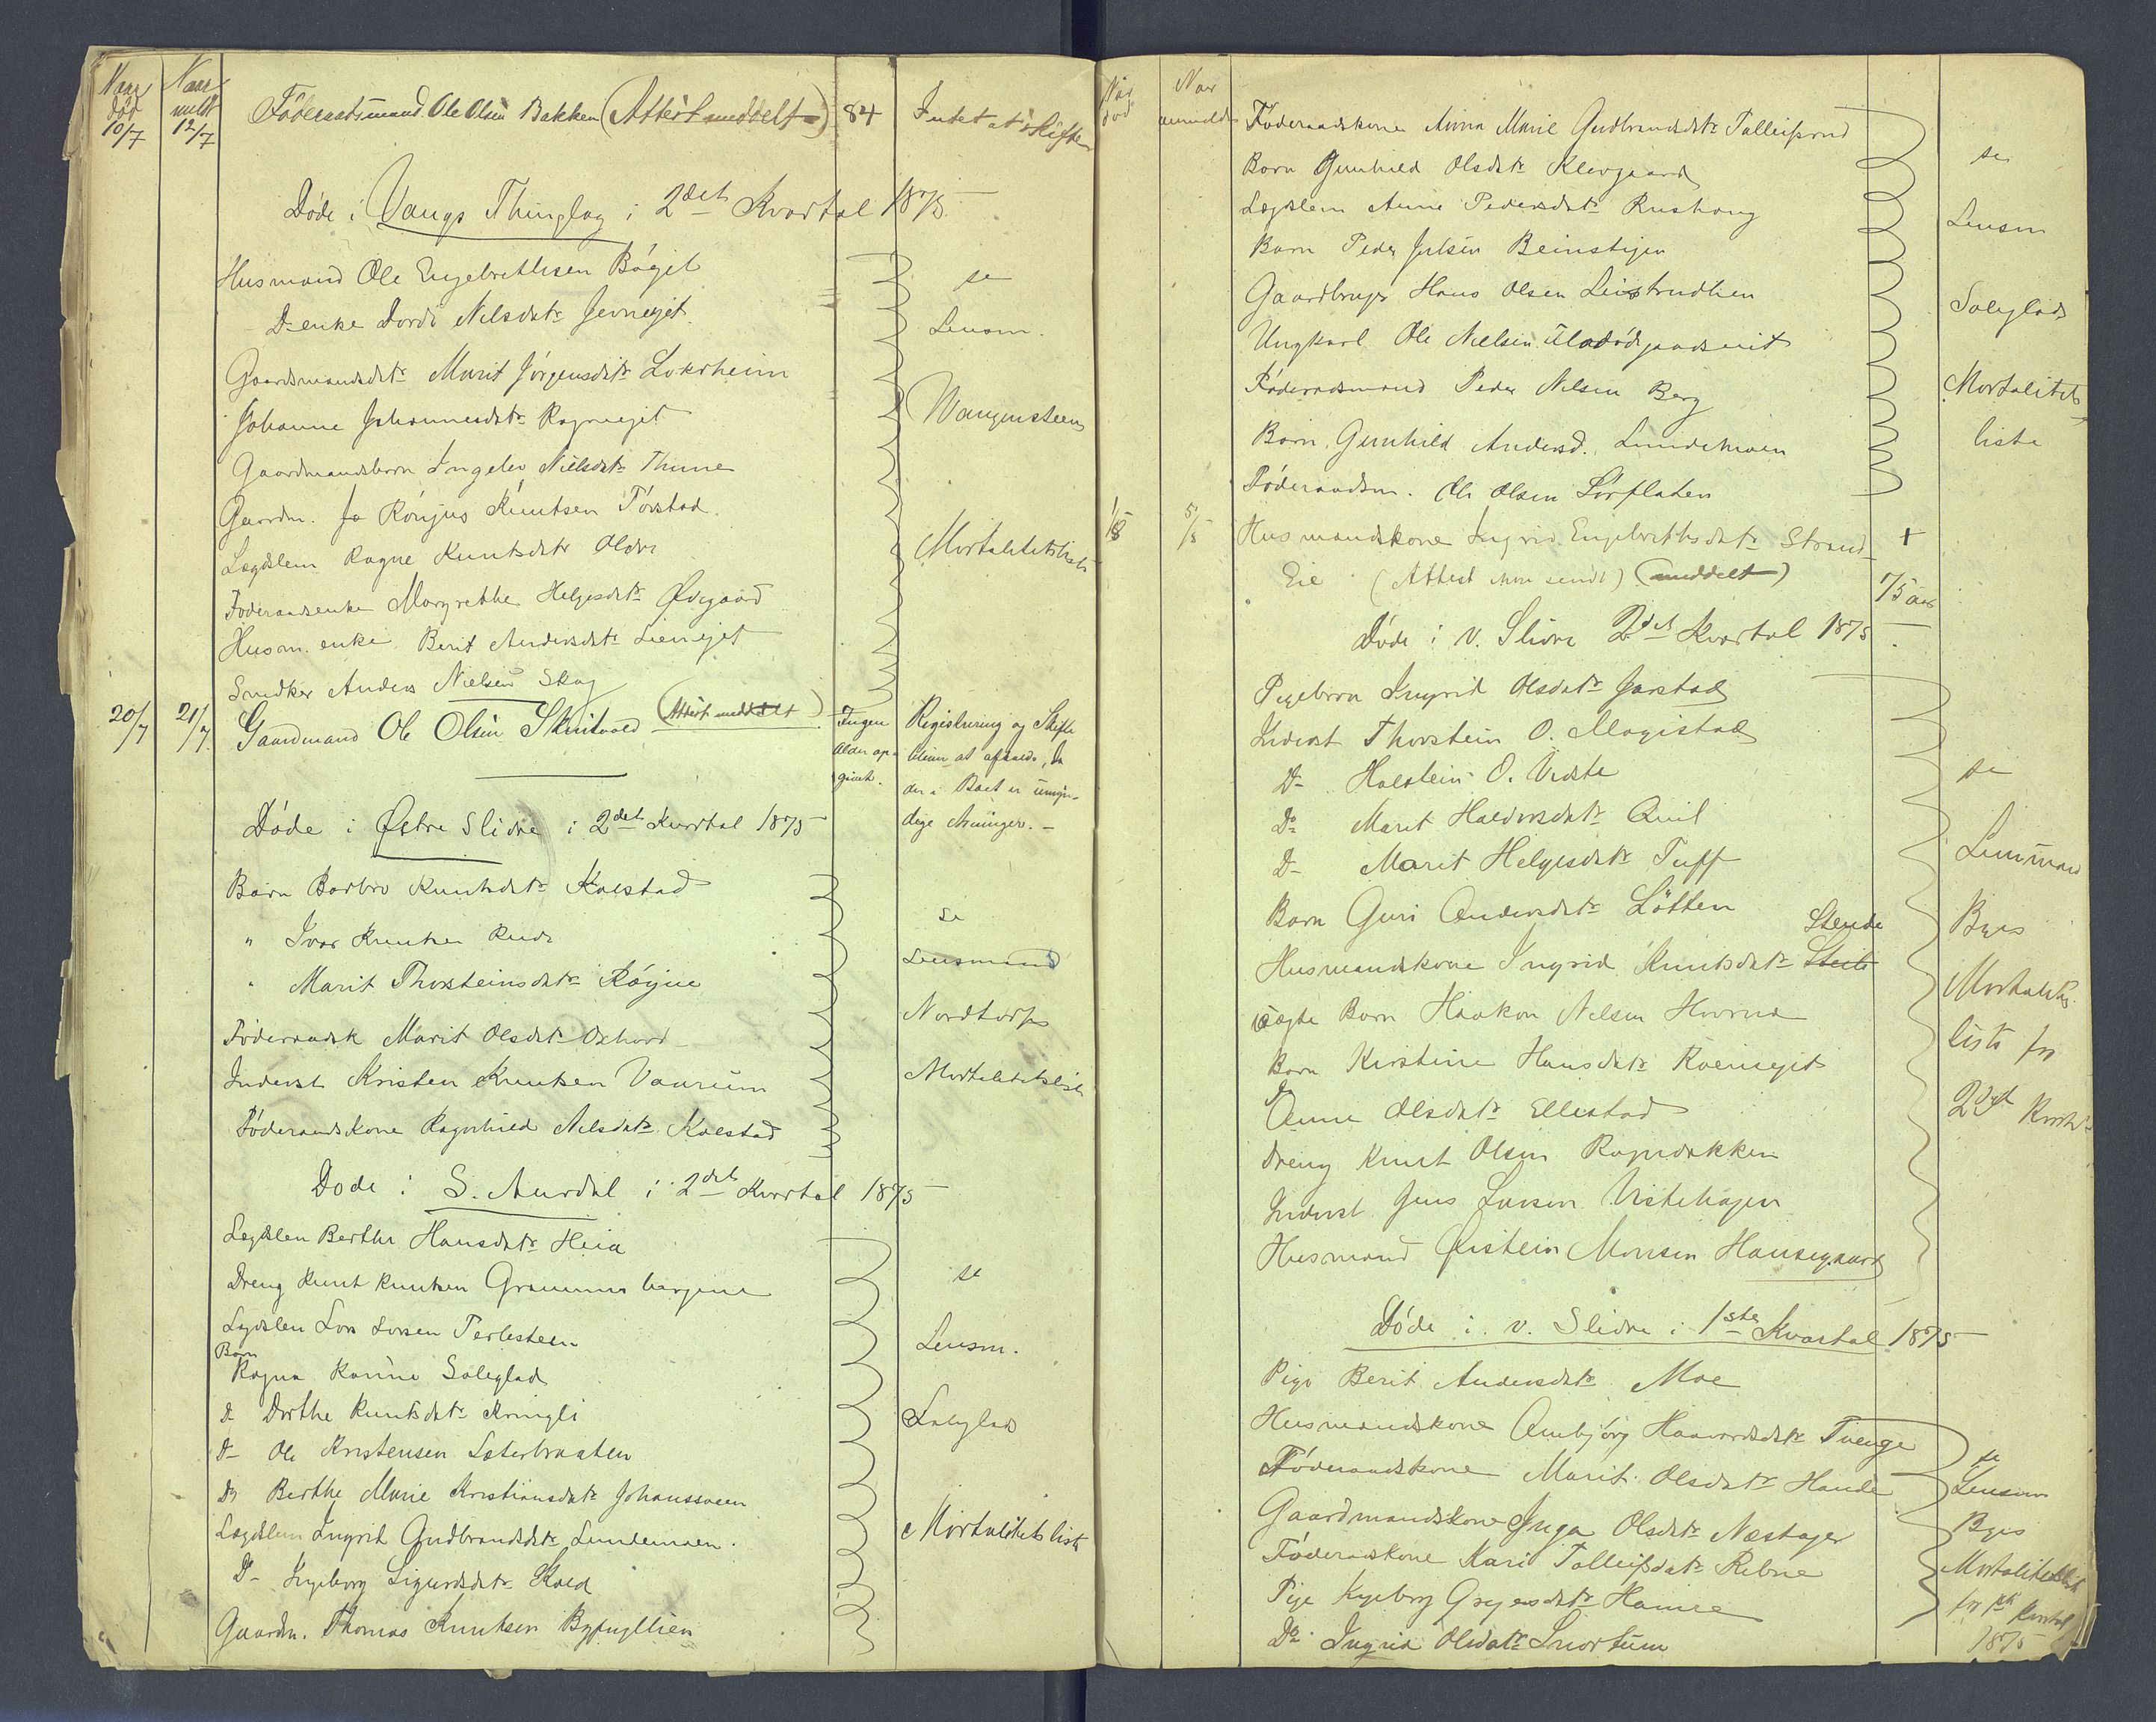 Naar død Naar meldt
10/7 12/7 Föderaadsmand Ole Olsen Bakken (Attest meddelt) 84 Intet at skifte
Døde i Vangs Thinglag i 2det Kvartal 1875
Husmand Ole Engebrethsen Bøget
D- enke Dordi Nilsdatr Jevneget
Gaardmandsdtr Marit Jörgensdtr Lokrheim
Johanne Johannesdatr Ragneget
Gaardmandsbarn Ingeleiv Nielsdatr Thune
Gaardm. Knutsen Torstad
Lægdslem Ragne Knutsdatr Oldre
Föderaadsenke Margrethe Helgesdtr Øvegaard
Husm. enke Berit Andersdtr Lieneget
Snedker Anders Nielsen Skog
se
Lensm.
Wangensteens
Mortalitetsliste
20/7 21/7 Gaardmand Ole Olsen Skutvold (Attest meddelt) Ingen Alder opgivet.
Registrering og Skifte
bliver at afholde, da
der i Boet er umyn-
dige Arvinger. -
Døde i Østre Slidre i 2det Kvartal 1875
Barn Barbro Knutsdtr Kolstad
" Ivar Knutsen Rude
" Marit Thorsteinsdatr Røgne
Föderaadsk Marit Olsdtr Oxhovd
Inderst Kristen Knutsen Vaurum
Föderaadskone Ragnhild Nilsdatr Kolstad
se
Lensmand
Nordtorps
Mortalitetsliste
Døde i S. Aurdal i 2det Kvartal 1875
Lægdslem Berthe Hansdatr Heia
Dreng Knut Knutsen
Lægdslem Lars Larsen Perlesteen
Barn
Ragna Karine Soleglad
D- Dorthe Knutsdtr Kringli
D- Ole Kristensen Sæterbraaten
Do Berthe Marie Kristiansdatr
Lægdslem Ingrid Gudbrandsdtr Lundemoen.
Do Ingeborg Sigurdsdtr Kold
Gaardm. Thomas Knutsen Bypugllien
se
Lensm.
Soleglads
Mortalitetsliste
Naar død Naar anmeldt
Föderaadskone Anna Marie Gudbrandsdtr Tolleifsrud
Barn Gunhild Olsdtr Klevgaard
Lægdslem Anne Pedersdatr Rushaug
Barn Peder Julsen Beinstigen
Gaardbruger Hans Olsen
Ungkarl Ole Nielsen
Föderaadsmand Peder Nilsen Berg
Barn Gunhild Andersd. Lundemoen
Föderaadsm. Ole Olsen Sørflaten
se
Lensm
Soleglads
Mortalitets
liste
1/8 5/8 Husmandskone Ingrid Engebrethsdatr Strand +
Eie (Attest sendt) (meddelt) 75 aar
Døde i V. Slidre 2det Kvartal 1875
Pigebarn Ingrid Olsdatr Jarstad
Inderst Thorstein O. Magistad
D- Halstein O. Vidste
Do Marit Haldorsdatr Qvil
D- Marit Helgesdtr Tuff
Barn Guri Andersdtr Løtten
Stende
Husmandskone Ingrid Knutsdatr
uægte Barn Haakon Nilsen Hovrud
Barn Kirstine Hansdatr
Do
Anne Olsdatr Ellestad
Dreng Knut Olsen Rognebakken
Inderst Jens Larsen Vistehagen
Husmand Øistein Monsen Hansegaard
se
Lensmand
Byes
Mortalitets.
liste for
2det Kvartal
Døde i V. Slidre i 1ste Kvartal 1875
Pige Berit Andersdtr Moe
Husmandskone Ambjørg Haavardsdtr Tvenge
Föderaadskone Marit Olsdatr Hande
Gaardmandskone Inga Olsdtr Næstager
Föderaadskone Kari Tolleifsdatr Ribne
Pige Ingeborg Gregersdtr Hamre
Do Ingrid Olsdatr Snortum
se
Lensm
Byes
Mortalitetsliste
for 1ste Kvartal
1875